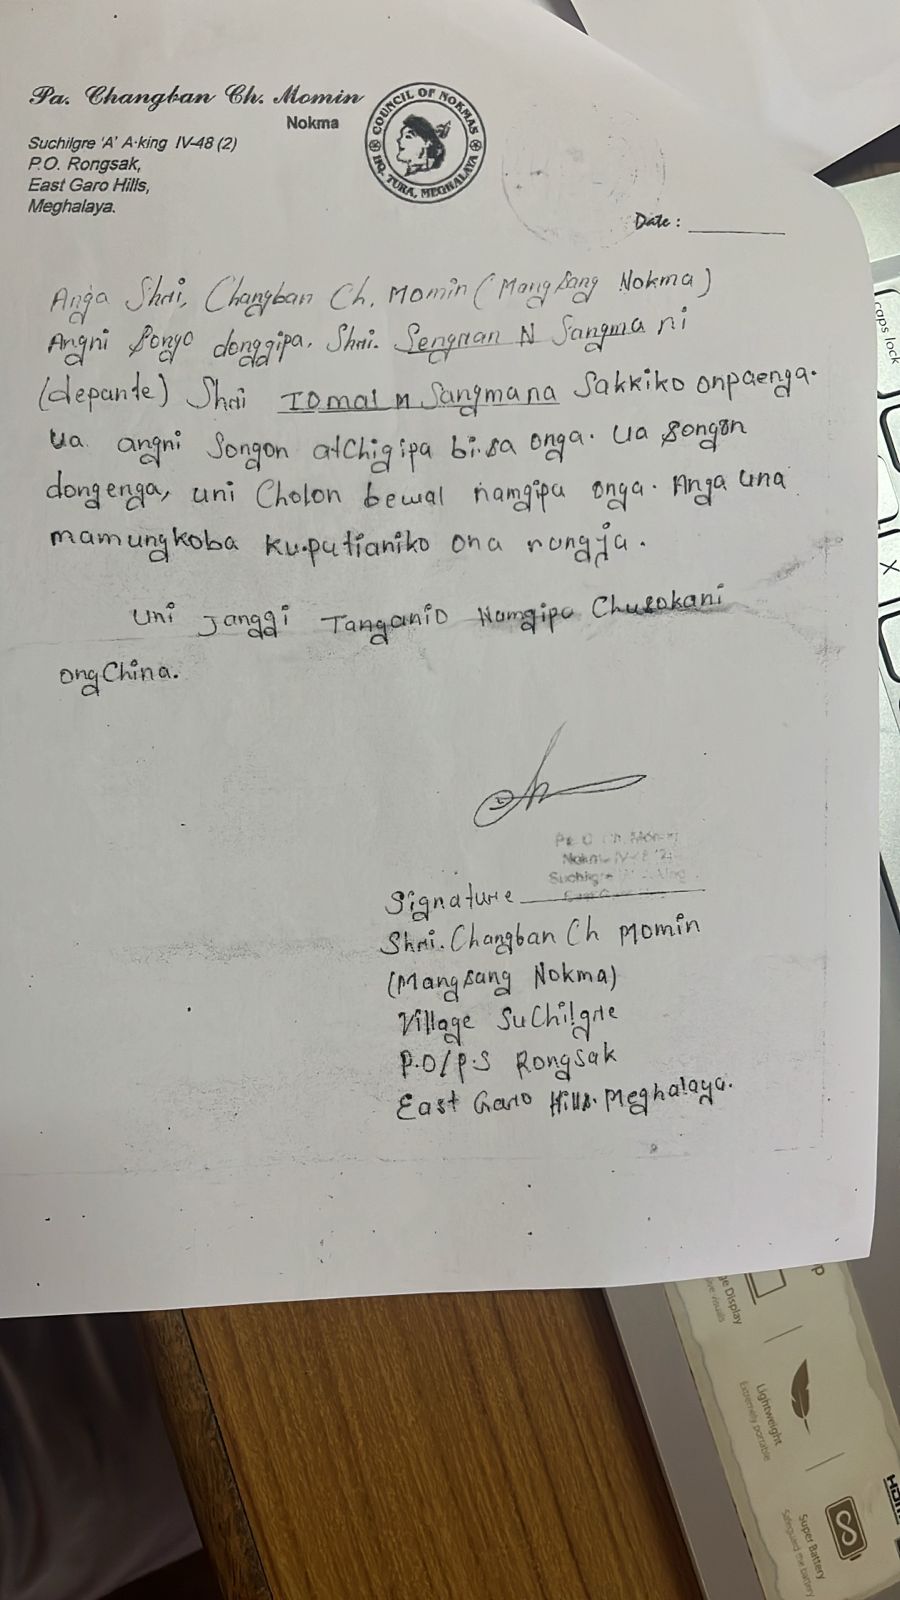 Pa. Changban Ch. Momin
Nokma
Suchilgre 'A' A·king IV-48 (2)
P.O. Rongsak,
East Garo Hills,
Meghalaya.
COUNCIL OF NOKMAS
HQ. TURA, MEGHALAYA
Date : ________
Anga Shri, Changban Ch. Momin (Mangsang Nokma)
Angni Songo donggipa. Shri. Sengnan N Sangma ni
(depante) Shri Idmal M Sangmana Sakkiko onpaenga.
ua angni Songon atchigipa bi·sa onga. ua songon
dongenga, uni Cholon bewal namgipa onga. Anga una
mamungkoba ku·putianiko ona nangja.
uni Janggi Tanganio Namgipa Chusokani
ongChina.
Signature
Shri. Changban Ch Momin
(Mangsang Nokma)
Village Suchilgre
P.O/P.S Rongsak
East Garo Hills. Meghalaya.
caps lock
X
Lightweight
Extremely portable
Super Battery
Safeguard the battery